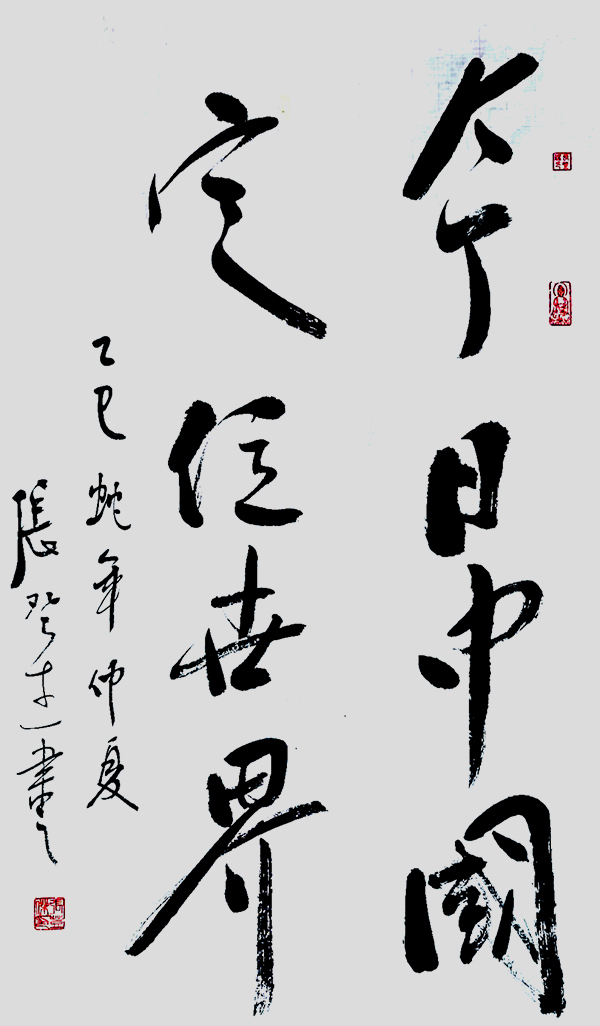 今日中國
定位世界
乙巳蛇年仲夏
張登才書